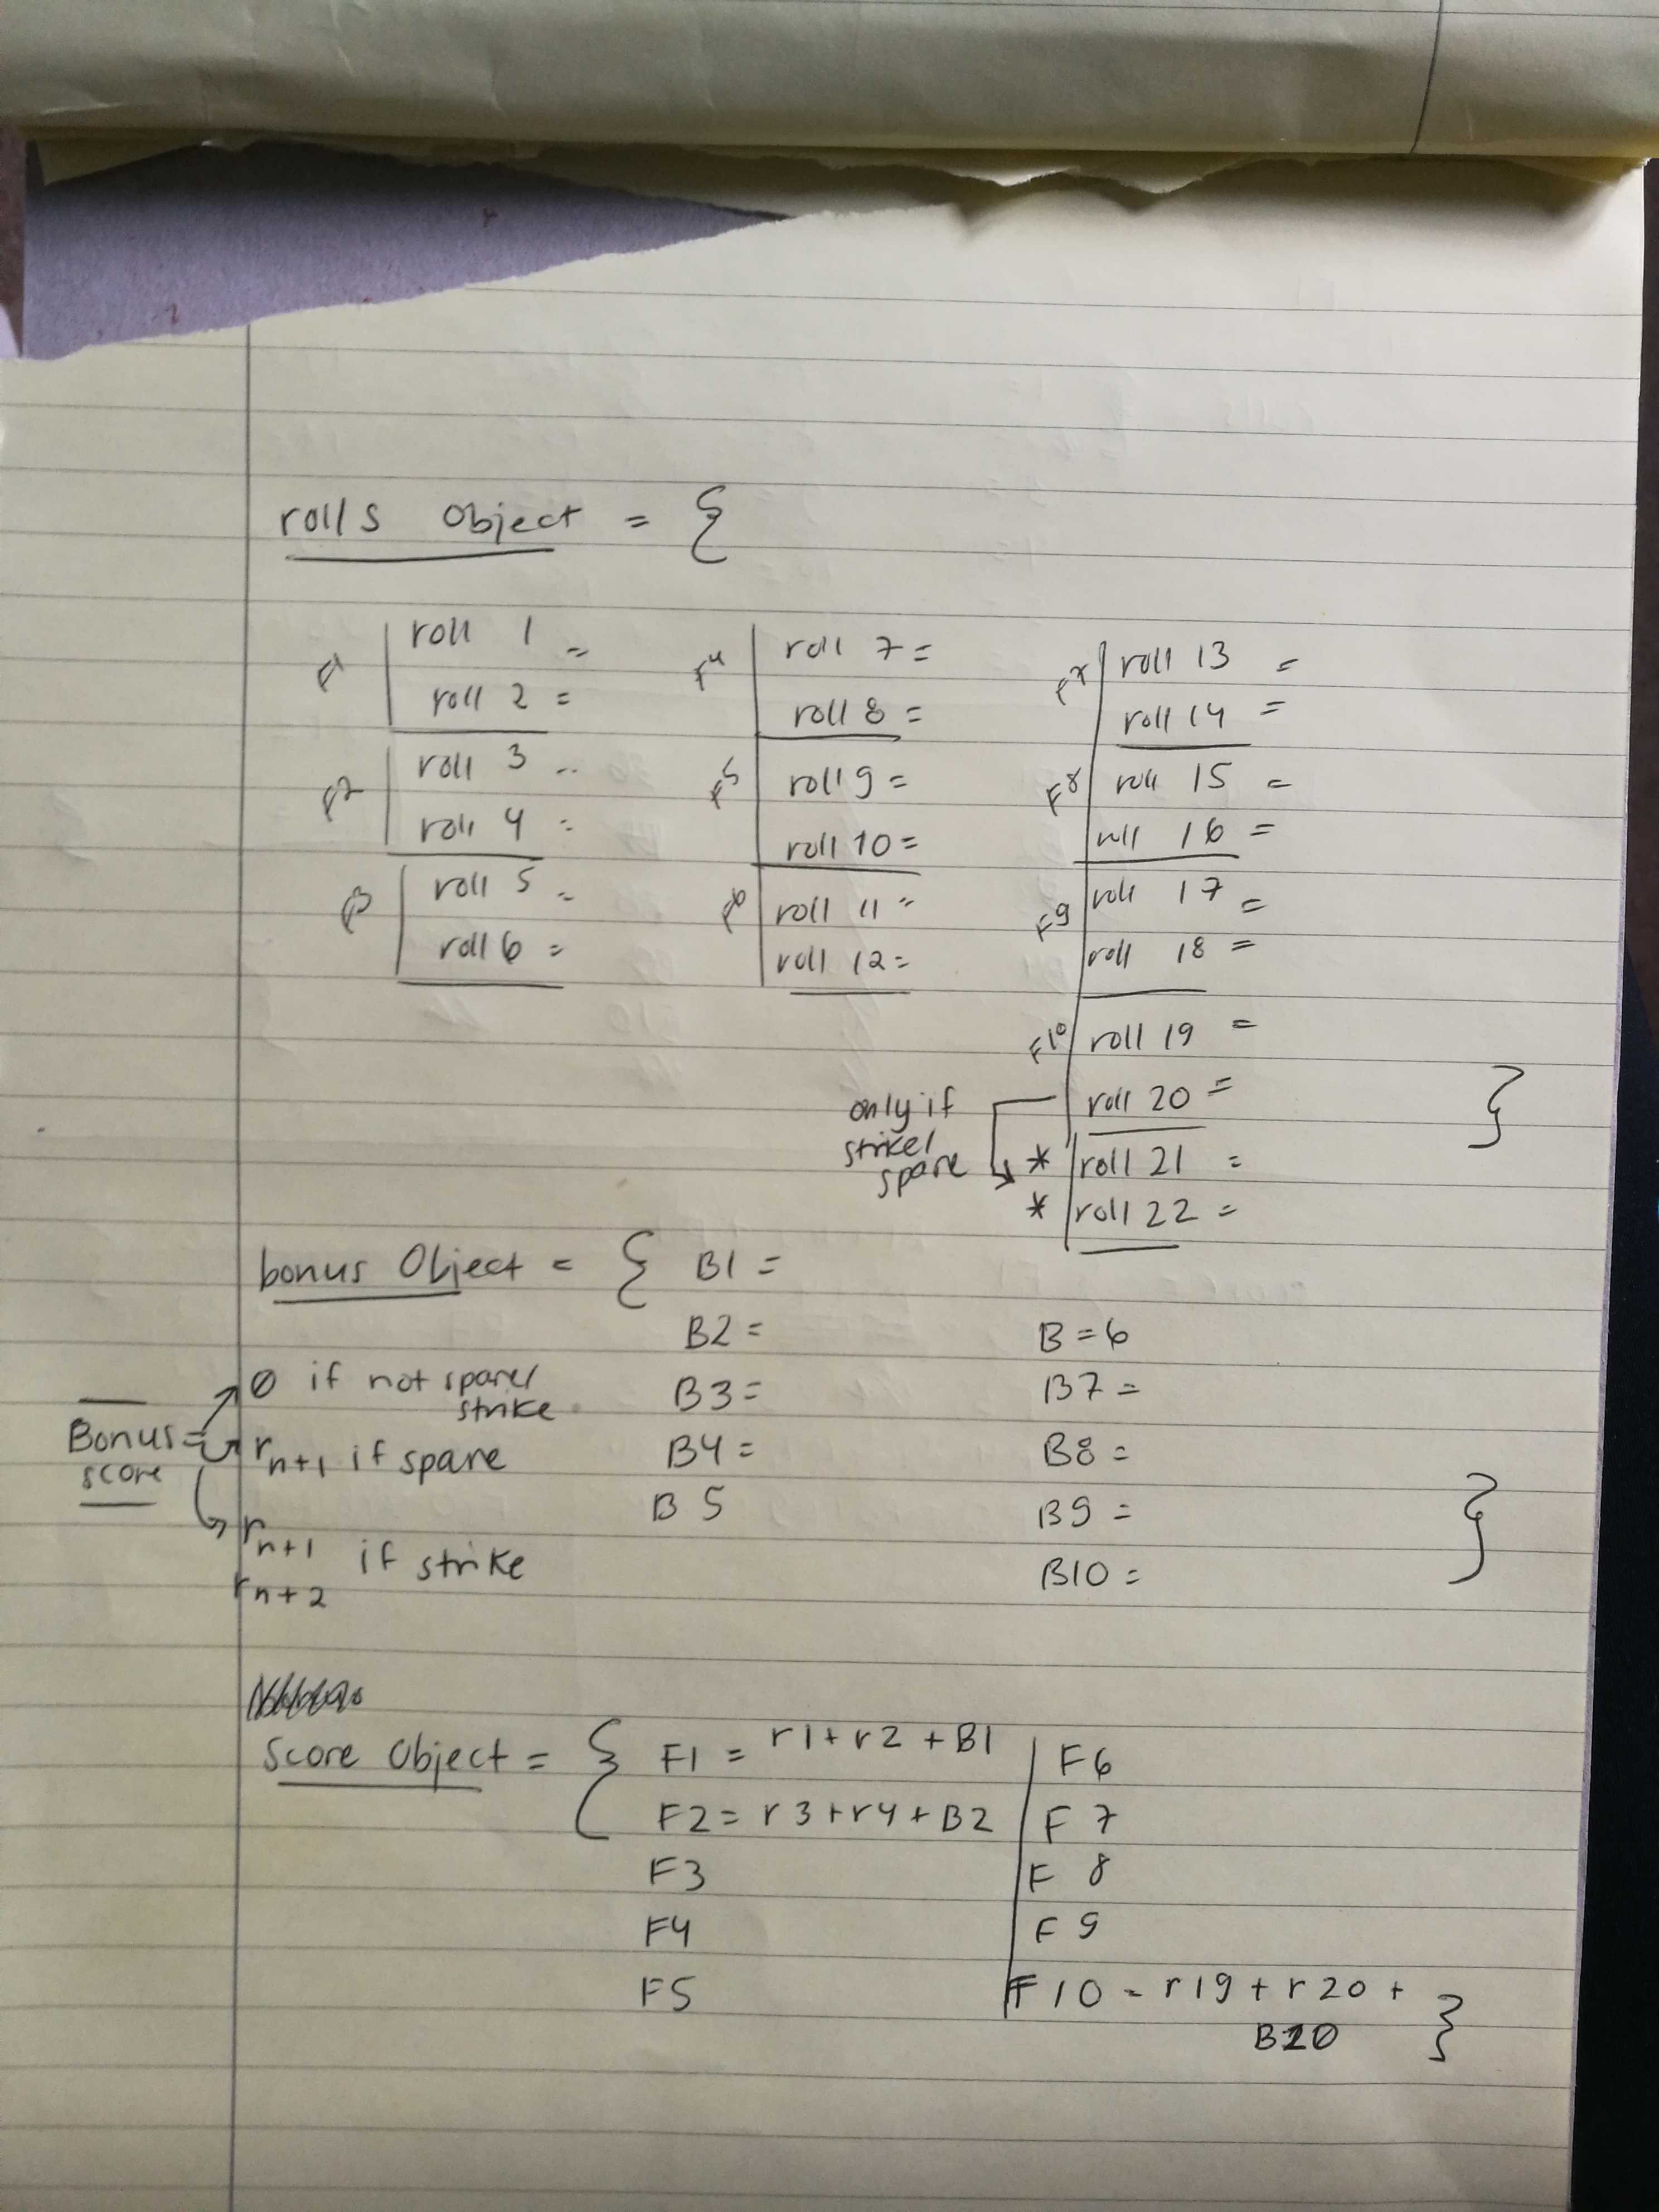 rolls Object = {
F1 roll 1 =
roll 2 =
F2 roll 3 =
roll 4 =
F3 roll 5 =
roll 6 =
F4 roll 7 =
roll 8 =
F5 roll 9 =
roll 10 =
F6 roll 11 =
roll 12 =
F7 roll 13 =
roll 14 =
F8 roll 15 =
roll 16 =
F9 roll 17 =
roll 18 =
F10 roll 19 =
roll 20 =
}
only if
strike/
spare
* roll 21 =
* roll 22 =
bonus Object = { B1 =
B2 =
B3 =
B4 =
B 5
B = 6
B7 =
B8 =
B9 =
B10 =
}
Bonus =
score
0 if not spare/
strike
rn+1 if spare
rn+1
rn+2 if strike
Score Object = { F1 = r1 + r2 + B1
F2 = r3 + r4 + B2
F3
F4
F5
F6
F 7
F 8
F 9
F 10 = r19 + r20 +
}